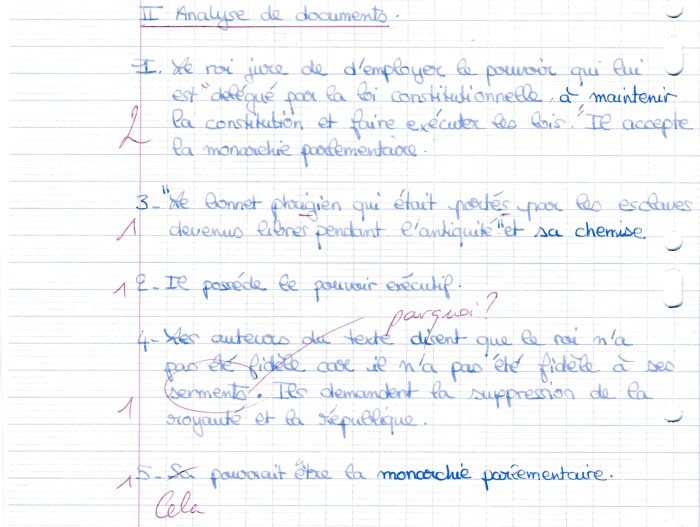 II Analyse de documents.
I. Le roi jure de d'employer le pouvoir qui lui
est "delégué par la loi constitutionnelle à maintenir
2 la constitution et faire exécuter les lois." Il accepte
la monarchie parlementaire.
3- "Le bonnet phrigien qui était portés par les esclaves
1 devenus libres pendant l'antiquité" et sa chemise
1 2- Il posséde le pouvoir exécutif.
parquoi?
4- Les auteurs du texte disent que le roi n'a
pas été fidèle car il n'a pas été fidèle à ses
serments. Ils demandent la suppression de la
1 royauté et la république.
1 5- Sa pourrait être la monarchie parlementaire.
Cela